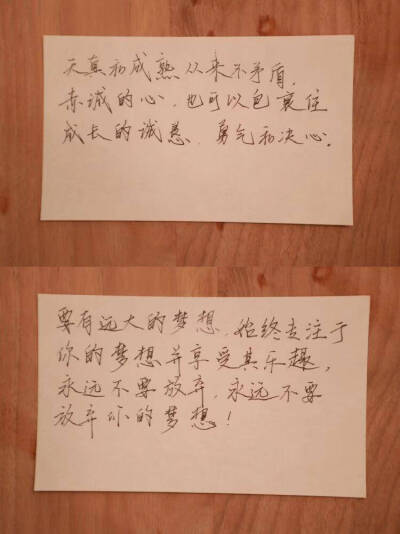 天真和成熟从来不矛盾,
赤诚的心,也可以包裹住
成长的诚恳,勇气和决心.
要有远大的梦想,始终专注于
你的梦想并享受其乐趣,
永远不要放弃,永远不要
放弃你的梦想!